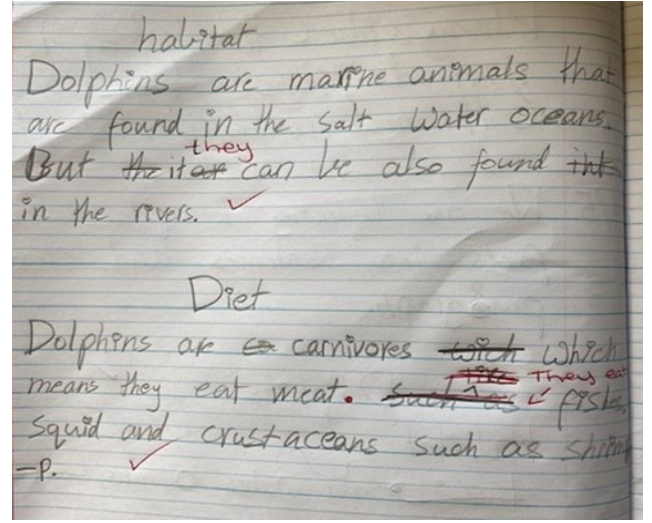 habitat
Dolphins are marine animals that
are found in the salt water oceans.
they
But the iter can be also found int
in the rivers.
Diet
Dolphins are ca carnivores wich which
like They eat
means they eat meat. Such as fishes,
squid and crustaceans such as shrim
-p.